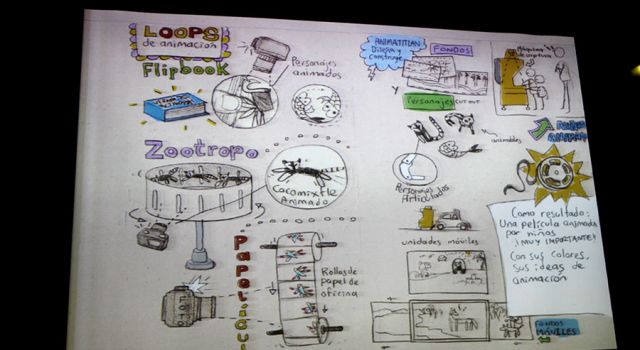 LOOPS
de animación
Flipbook
Personajes
animados
Zootropo
Cacomixtle
Animado
Rollos
de
papel de
oficina
ANIMATITLAN
Diseña y
Construye
FONDOS
Y
Personajes CUT OUT
animables
Personajes
Articulados
unidades móviles
Máquina
de captura
Como resultado:
Una película animada
por niños
¡MUY IMPORTANTE!
Con sus colores,
sus ideas de
animación
FONDOS
MÓVILES